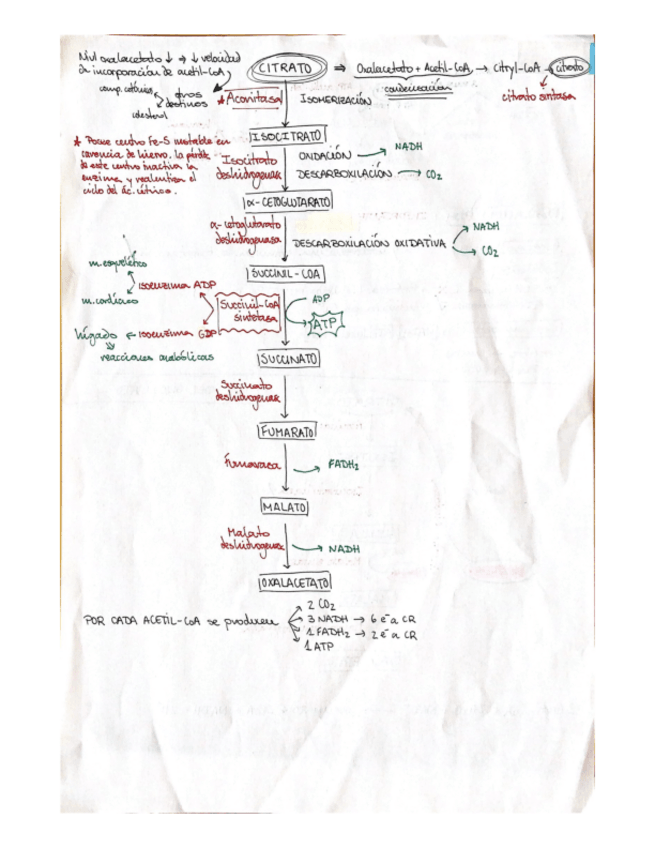 Nivel oxalacetato ↓ → ↓ velocidad
de incorporación de acetil-CoA
comp. cetónicos
otros
destinos
colesterol
CITRATO ⇒ Oxalacetato + Acetil-CoA → Citryl-CoA → citrato
condensación
citrato sintasa
* Aconitasa
ISOMERIZACIÓN
* Posee centro Fe-S inestable en
carencia de hierro. La pérdida
de este centro inactiva la
enzima y realentiza el
ciclo del ác. cítrico.
ISOCITRATO
Isocitrato
deshidrogenasa
OXIDACIÓN → NADH
DESCARBOXILACIÓN → CO₂
α-CETOGLUTARATO
α-cetoglutarato
deshidrogenasa
DESCARBOXILACIÓN OXIDATIVA
NADH
CO₂
SUCCINIL-COA
m. esquelético
m. cardíaco
isoenzima ADP
Succinil-CoA
sintetasa
ADP
ATP
hígado ← isoenzima GDP
reacciones anabólicas
SUCCINATO
Succinato
deshidrogenasa
FUMARATO
Fumarasa
→ FADH₂
MALATO
Malato
deshidrogenasa
→ NADH
OXALACETATO
POR CADA ACETIL-CoA se producen
2 CO₂
3 NADH → 6 e⁻ a CR
1 FADH₂ → 2 e⁻ a CR
1 ATP